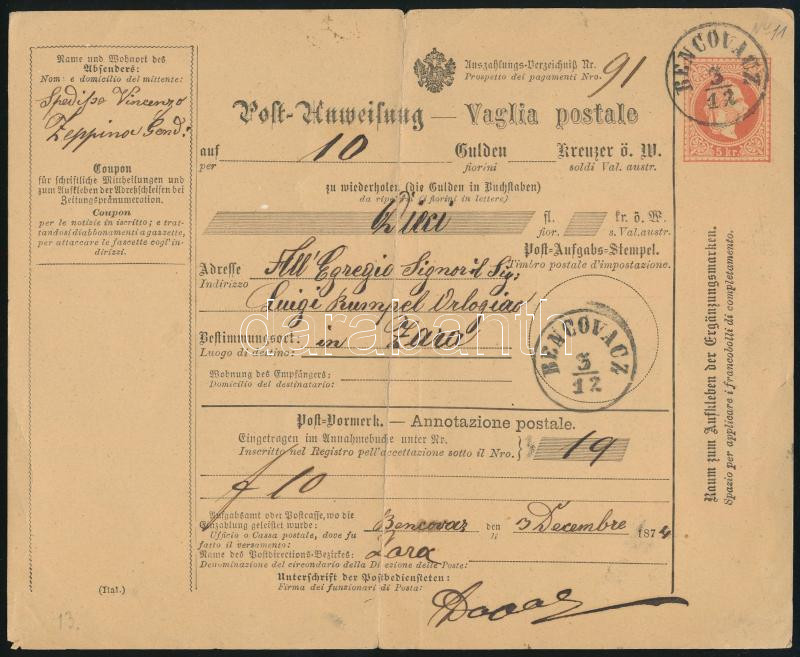 Name und Wohnort des
Absenders:
Nome e domicilio del mittente:
Vincenzo
Coupon
für schriftliche Mittheilungen und
zum Aufkleben der Adreßschleifen bei
Zeitungspränumeration.
Coupon
per le notizie in iscritto; e trat-
tandosi di abbonamenti a gazzette,
per attaccare le fascette cogl' in-
dirizzi.
(Ital.)
13.
Auszahlungs-Verzeichniß Nr.
Prospetto dei pagamenti Nro.
91
Post-Anweisung — Vaglia postale
auf 10 Gulden Kreuzer ö. W.
per fiorini soldi Val. austr.
zu wiederholen (die Gulden in Buchstaben)
da ripetersi (i fiorini in lettere)
Dieci fl. kr. ö. W.
fior. s. Val. austr.
Post-Aufgabs-Stempel.
Timbro postale d'impostazione.
Adresse All' Egregio Signor il Sigr
Indirizzo
Luigi Rumpel Orlogiao
Bestimmungsort: in Zara
Luogo di destino:
Wohnung des Empfängers:
Domicilio del destinatario:
BENCOVACZ
3
12
Post-Vormerk. — Annotazione postale.
Eingetragen im Annahmebuche unter Nr.
Inscritto nel Registro pell'accettazione sotto il Nro.
19
f 10
Aufgabsamt oder Postcasse, wo die
Einzahlung geleistet wurde: Bencovaz den 3 Decembre 1874
Ufficio o Cassa postale, dove fu li
fatto il versamento:
Name des Postdirections-Bezirkes: Zara
Denominazione del circondario della Direzione delle Poste:
Unterschrift der Postbediensteten:
Firma dei funzionari di Posta:
BENCOVACZ
3
12
5 kr.
Raum zum Aufkleben der Ergänzungsmarken.
Spazio per applicare i francobolli di completamento.
darabanth